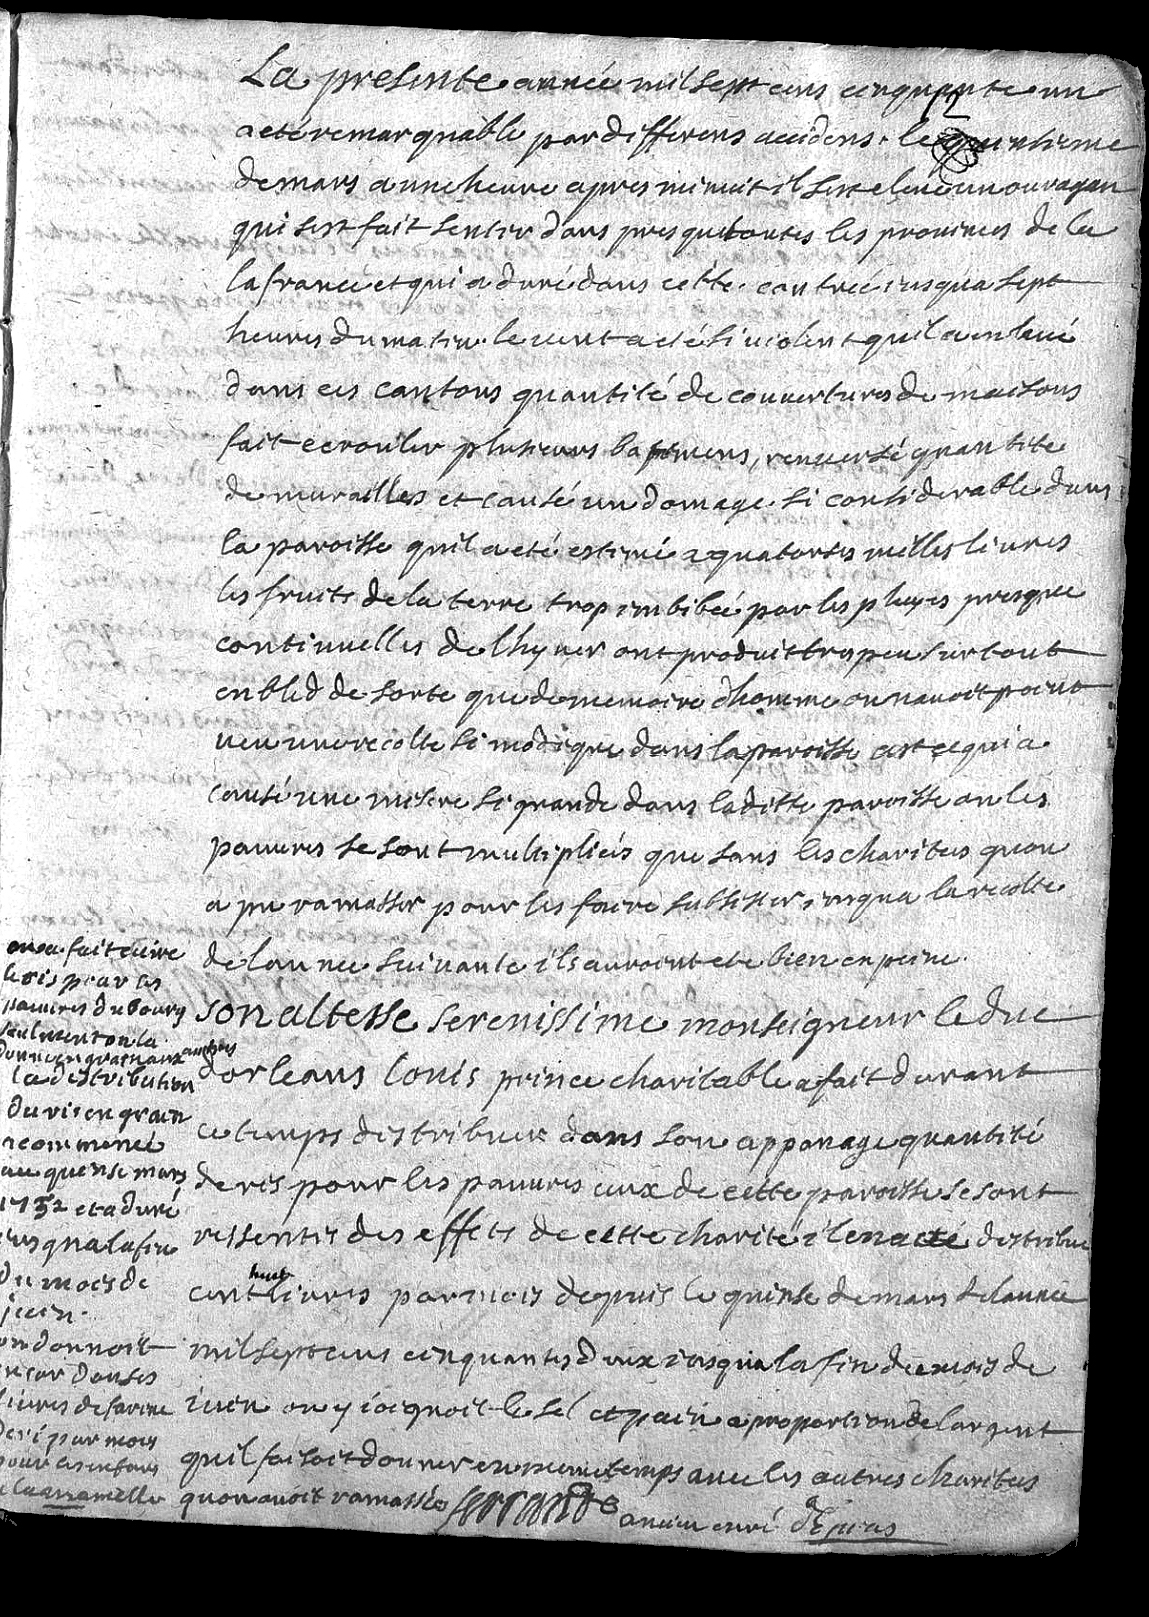 La presente année mil sept cens cinquante un
a eté remarquable par differens accidens. le quinsieme
de mars a une heure apres minuit il sest elevé un ouragan
qui sest fait sentir dans presque toutes les provinces de la
la france et qui a duré dans cette contrée iusqua sept
heures du matin. le vent a eté si violent quil a enlevé
dans ces cantons quantité de couvertures de maisons
fait ecrouler plusieurs batimens, renversé quantité
de murailles et causé un domage si considerable dans
la paroisse quil a eté estimé a quatorses milles livres
les fruits de la terre trop imbibée par les pluyes presque
continuelles de lhyver ont produit tres peu surtout
en bled de sorte que de memoire dhomme on navoit point
veu une recolte si modique dans la paroisse cest ce qui a
causé une misere si grande dans laditte paroisse ou les
pauvres se sont multipliés que sans les charites quon
a pu ramasser pour les faire subsister iusqua la recolte
de lannee suivante ils auroint ete bien en peine.
son altesse serenissime monseigneur le duc
dorleans Louis prince charitable a fait durant
ce temps distribuer dans son apponage quantité
de ris pour les pauvres ceux de cette paroisse se sont
ressentis des effets de cette charité il en a eté distribué
cent huit livres par mois depuis le quinse de mars de lannee
mil sept cens cinquantes deux iusqua la fin de mois de
iuin on y ioignoit le sel et pain a proportion de largent
quil faisoit donner en meme temps avec les autres charites
quon avoit ramassées ferrand
ancien curé
on a fait cuire
le ris pour les
pauvres du bourg
seulment on la
donné en grain aux autres
la distribution
du ris en grain
a commencé
au quinse mars
1752 et a duré
iusqua la fin
du mois de
juin.
on donnoit
encor douses
livres de farine
de ri par mois
pour les enfans
a la mamelle